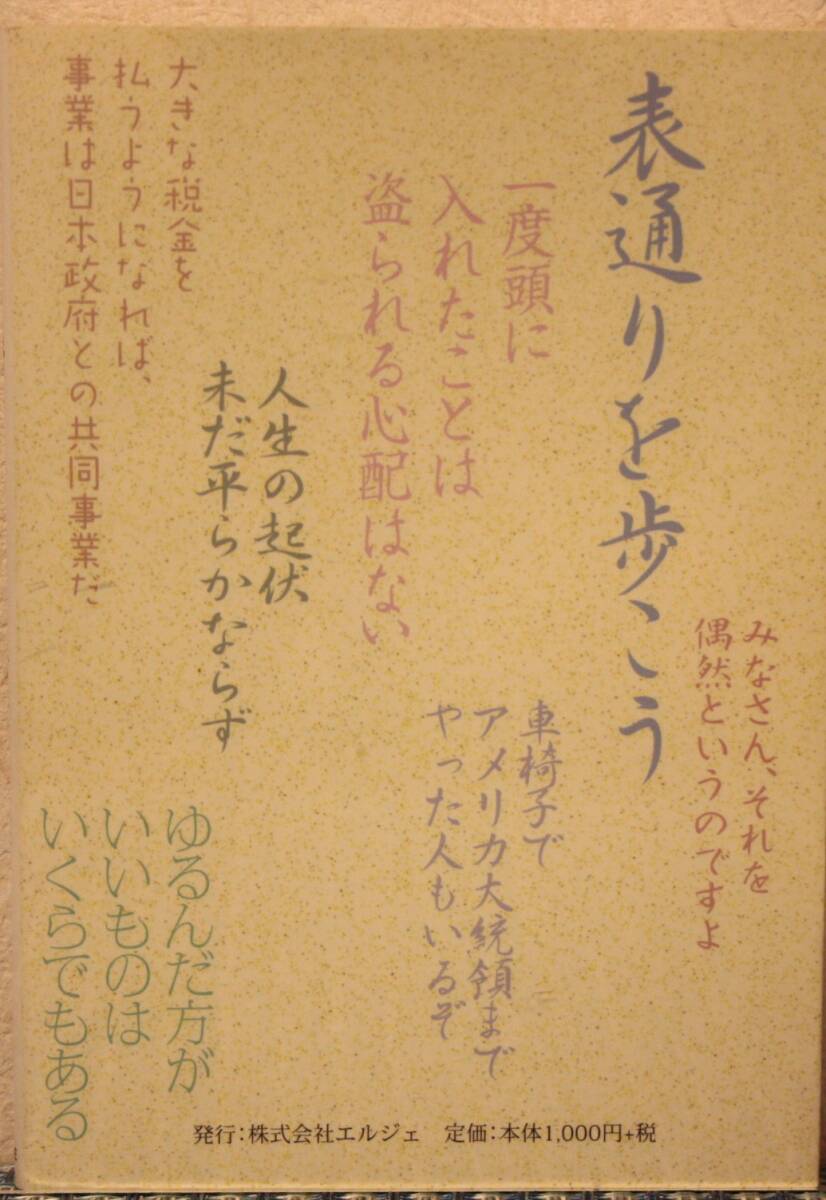 表通りを歩こう
みなさん、それを
偶然というのですよ
一度頭に
入れたことは
盗られる心配はない
車椅子で
アメリカ大統領まで
やった人もいるぞ
人生の起伏
未だ平らかならず
大きな税金を
払うようになれば、
事業は日本政府との共同事業だ
ゆるんだ方が
いいものは
いくらでもある
発行:株式会社エルジェ 定価:本体1,000円+税